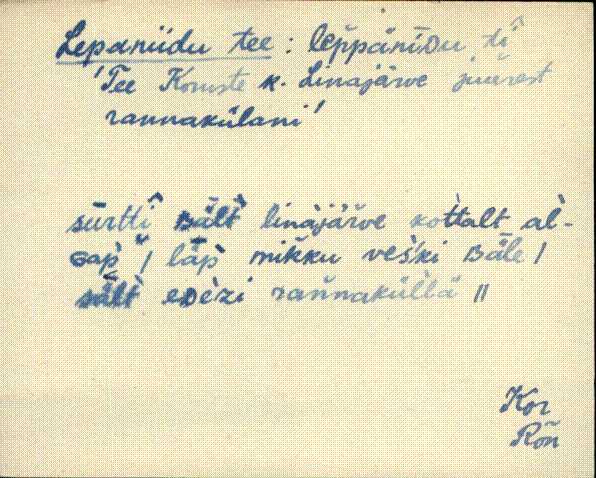 Lepaniidu tee : leppänīᴅu tî
'Tee Koruste k. Linajärve juurest
rannakülani'
sūrttî sält linàjärve kottalt al-
Gap / läp mikku veski Bäle /
sält eᴅèzi rannakülla ||
Kor
Rõn